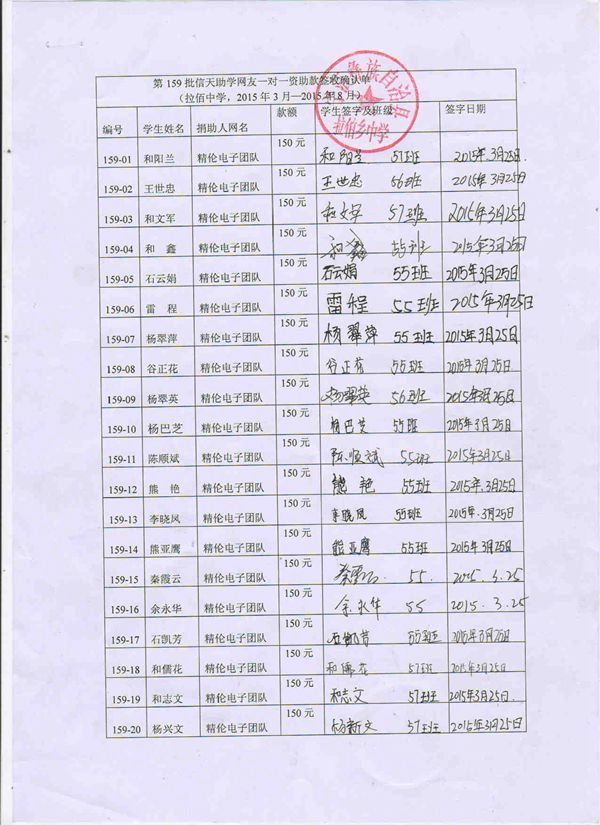 第 159 批信天助学网友一对一资助款签收确认单
（拉佰中学，2015 年 3 月—2015 年 8 月）
族自治县
拉佰乡中学
编号 学生姓名 捐助人网名 款额 学生签字及班级 签字日期
159-01 和阳兰 精伦电子团队 150 元 和阳兰 57班 2015年3月25日
159-02 王世忠 精伦电子团队 150 元 王世忠 56班 2015年3月25日
159-03 和文军 精伦电子团队 150 元 和文军 57班 2015年3月25日
159-04 和 鑫 精伦电子团队 150 元 和鑫 55班 2015年3月25日
159-05 石云娟 精伦电子团队 150 元 石云娟 55班 2015年3月25日
159-06 雷 程 精伦电子团队 150 元 雷程 55班 2015年3月25日
159-07 杨翠萍 精伦电子团队 150 元 杨翠萍 55班 2015年3月25日
159-08 谷正花 精伦电子团队 150 元 谷正花 55班 2015年3月25日
159-09 杨翠英 精伦电子团队 150 元 杨翠英 56班 2015年3月25日
159-10 杨巴芝 精伦电子团队 150 元 杨巴芝 55班 2015年3月25日
159-11 陈顺斌 精伦电子团队 150 元 陈顺斌 55班 2015年3月25日
159-12 熊 艳 精伦电子团队 150 元 熊艳 55班 2015年3月25日
159-13 李晓凤 精伦电子团队 150 元 李晓凤 55班 2015年3月25日
159-14 熊亚鹰 精伦电子团队 150 元 熊亚鹰 55班 2015年3月25日
159-15 秦霞云 精伦电子团队 150 元 55. 2015.3.25
159-16 余永华 精伦电子团队 150 元 余永华 55 2015.3.25
159-17 石凯芳 精伦电子团队 150 元 石凯芳 55班 2015年3月25日
159-18 和儒花 精伦电子团队 150 元 和儒花 57班 2015年3月25日
159-19 和志文 精伦电子团队 150 元 和志文 57班 2015年3月25日.
159-20 杨兴文 精伦电子团队 150 元 杨新文 57班 2015年3月25日